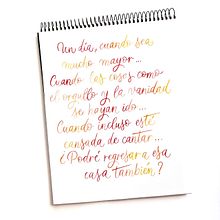 Un día, cuando sea
mucho mayor...
Cuando las cosas como
el orgullo y la vanidad
se hayan ido...
Cuando incluso esté
cansada de cantar...
¿Podré regresar a esa
casa también?